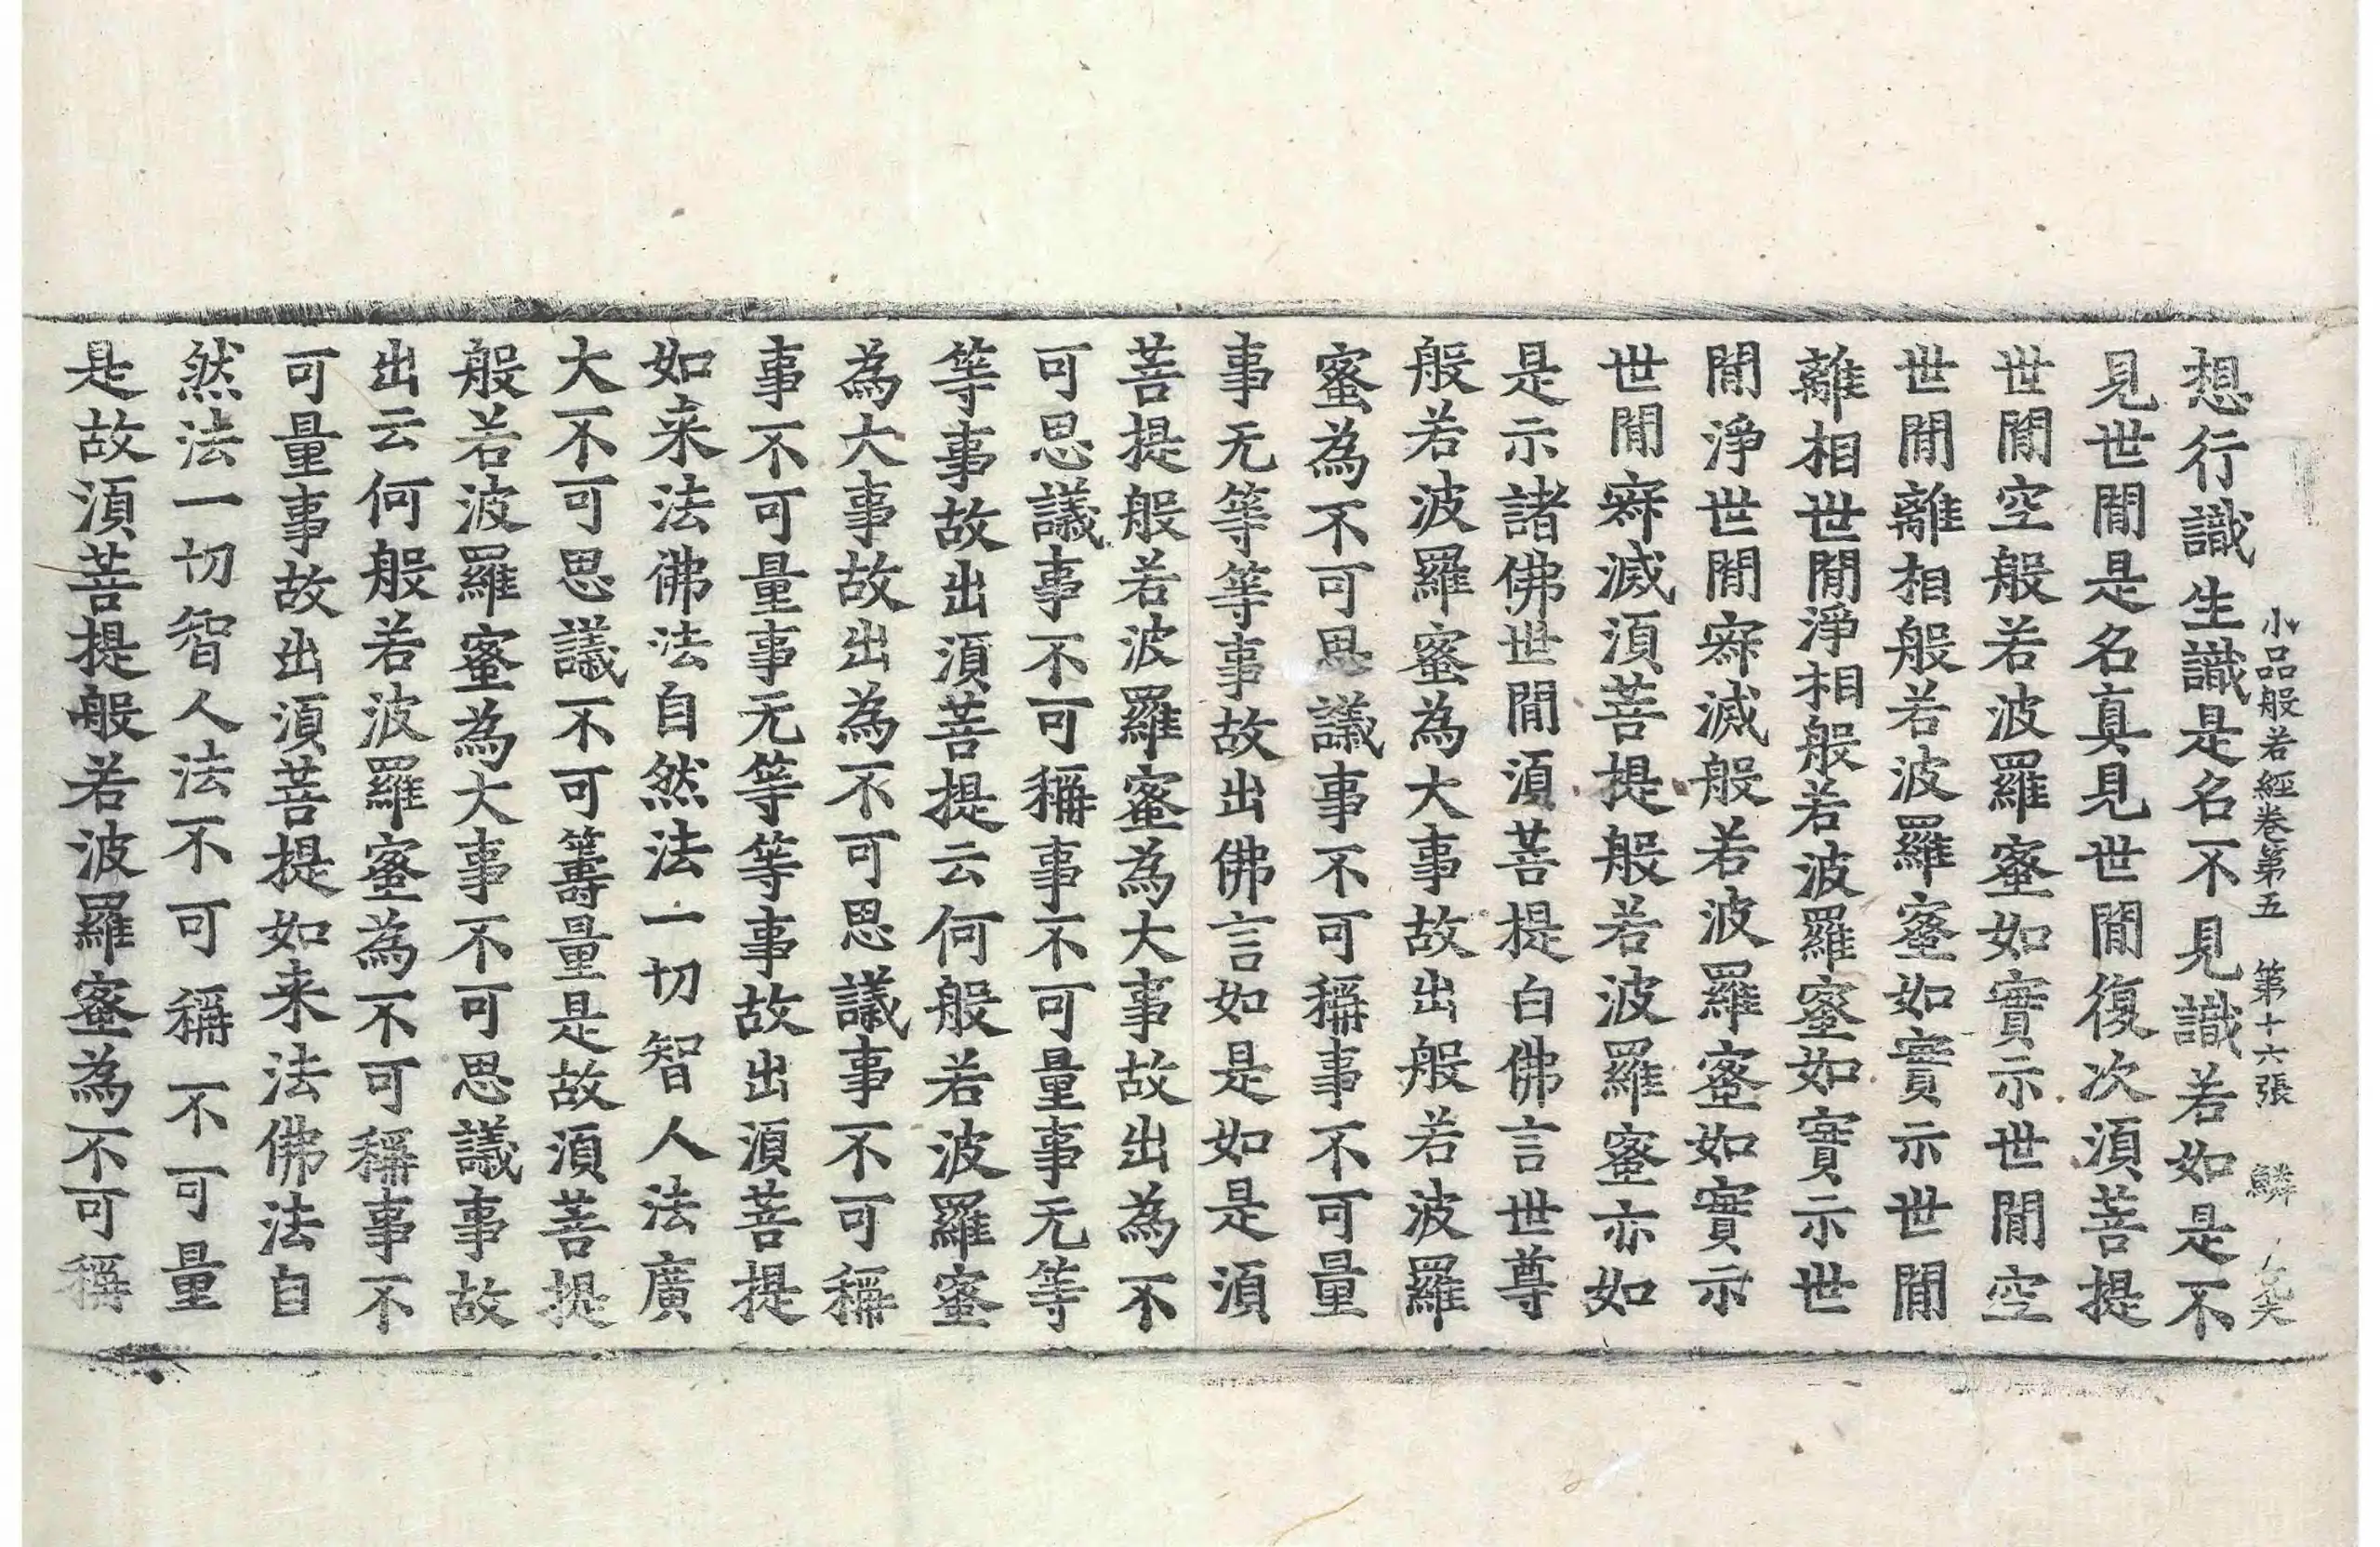 小品般若經卷第五 第十六張 鱗
想行識生識是名不見識若如是不
見世閒是名真見世閒復次湏菩提
世閒空般若波羅蜜如實示世閒空
世閒離相般若波羅蜜如實示世閒
離相世閒淨相般若波羅蜜如實示世
閒淨世閒寂滅般若波羅蜜如實示
世閒寂滅湏菩提般若波羅蜜亦如
是示諸佛世閒湏菩提白佛言世尊
般若波羅蜜為大事故出般若波羅
蜜為不可思議事不可稱事不可量
事无等等事故出佛言如是如是湏
菩提般若波羅蜜為大事故出為不
可思議事不可稱事不可量事无等
等事故出湏菩提云何般若波羅蜜
為大事故出為不可思議事不可稱
事不可量事无等等事故出湏菩提
如来法佛法自然法一切智人法廣
大不可思議不可籌量是故湏菩提
般若波羅蜜為大事不可思議事故
出云何般若波羅蜜為不可稱事不
可量事故出湏菩提如来法佛法自
然法一切智人法不可稱不可量
是故湏菩提般若波羅蜜為不可稱